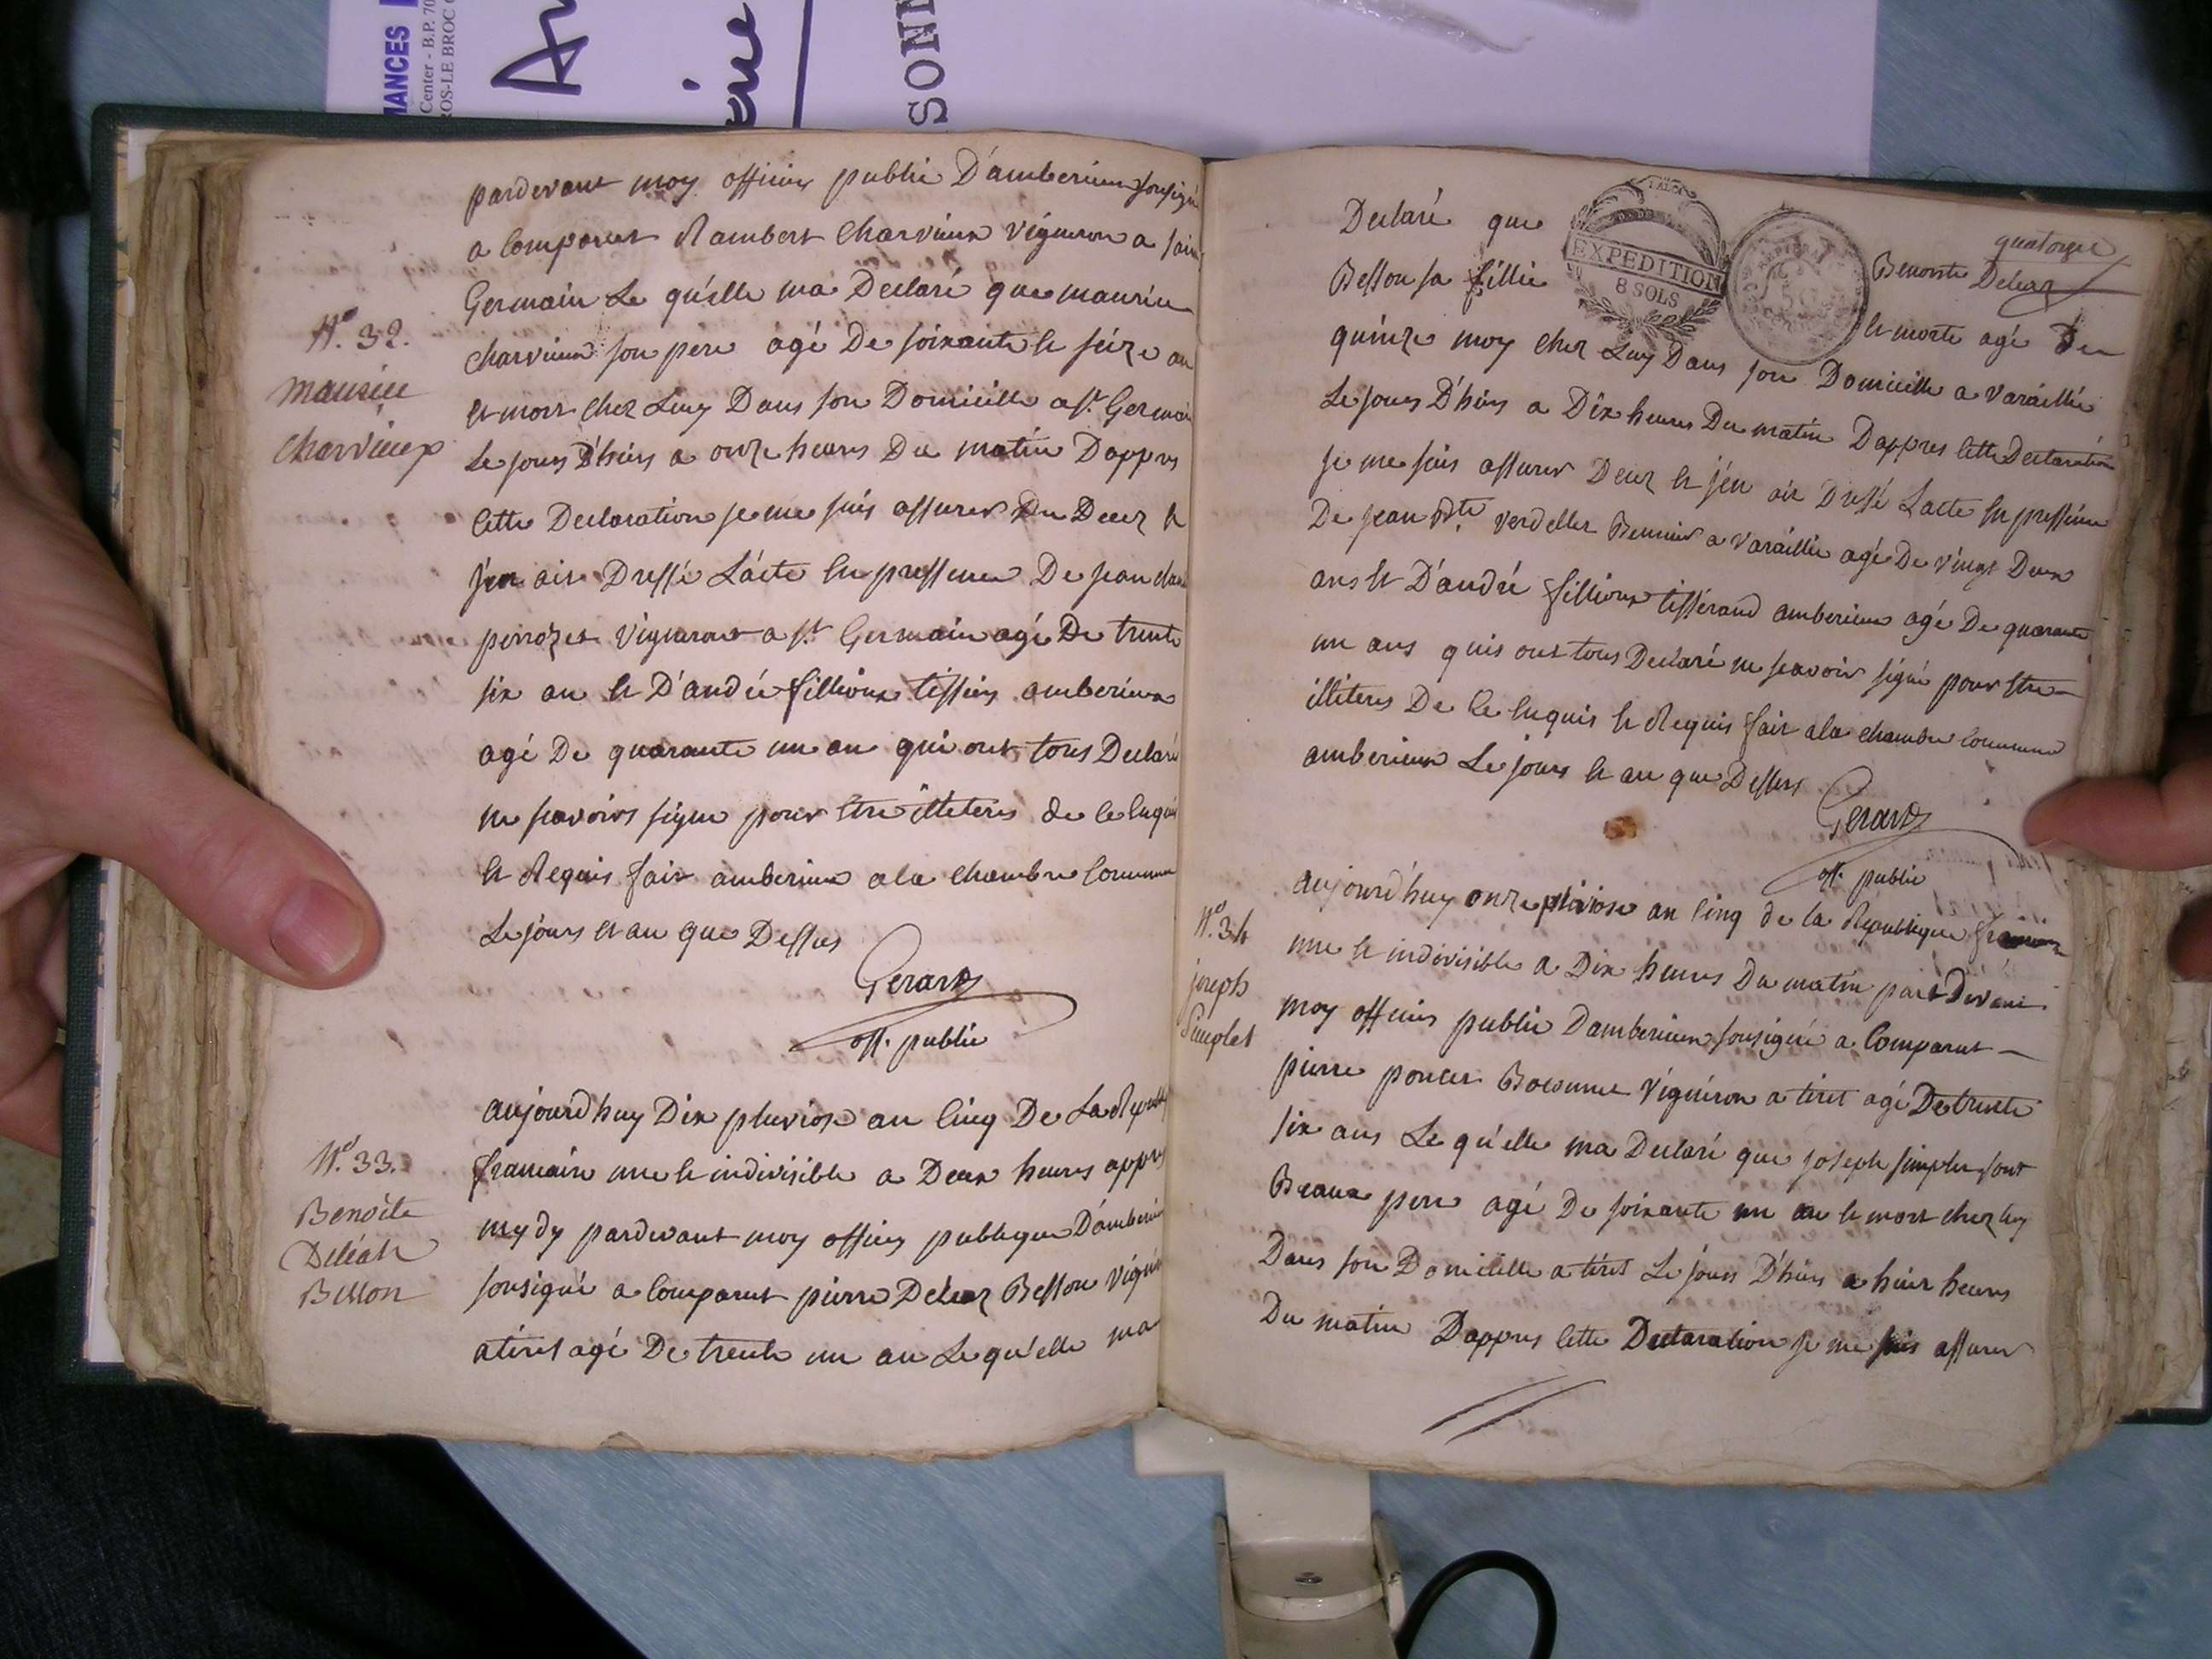 MANCES
Center - B.P. 70
ROS-LE BROC
SON
pardevant moy officier public D'amberieux sousigné
a Comparut Rambert Charvieux vigneron a sain
Germain Le qu'elle ma Declaré que maurice
Charvieux son pere agé De soixante et seize an
et mort chez Luy Dans son Domicille a St Germain
Le jours D'hiers a onze heures Du matin Dappres
cette Declaration je me suis assurer Du Decez et
j'en ait Dressé L'acte en pressence De jean
perrozet vigneront a St Germain agé De trente
six an et D'andré fillioux tissier amberieux
agé De quarante un an qui ont tous Declaré
ne scavoirs signe pour etre illeteris de ce enquis
et Requis fait amberieux a la chambre Commune
Le jours et an que Dessus
Gerard
off. public
N.o 32.
maurice
Charvieux
aujourdhuy Dix pluviose an Cinq De La Republ
francaise une et indivisible a Deux heures appres
mydy pardevant moy officier publique D'amberieu
sousigné a Comparut pierre Deleaz Besson vigner
a tiret agé De trente un an Le qu'elle ma
N.o 33.
Benoite
Deléaz
Besson
quatorze
Declaré que Benoite Deleaz
EXPEDITION
8 SOLS
Besson sa fillie et morte agé De
quinze moy chez Luy Dans son Domicille a varaillie
Le jours D'hiers a Dix heures Du matin Dappres cette Declaration
je me suis assurer Decez et j'en ait Dressé Lacte en pressence
De jean Bte verdellet a varaillie agé De vingt Deux
ans et D'andré fillioux tisserand amberieux agé De quarante
un ans quis ont tous Declaré ne scavoir signé pour etre
illiteres De ce enquis et Requis fait a la chambre Commune
amberieux Le jours et an que Dessus
Gerard
off. public
N.o 34
joseph
Simplet
aujourd'huy onze pluviose an Cinq de la Republique francaise
une et indivisible a Dix heures Du matin par Devant
moy officier public Damberieux sousigné a Comparut
pierre poncet vigneron a tiret agé De trente
six ans Le qu'elle ma Declaré que joseph simplet sont
Beaux pere agé De soixante un an et mort chez luy
Dans son Domicille a tiret Le jours D'hiers a huit heures
Du matin Dappres cette Declaration je me suis assurer